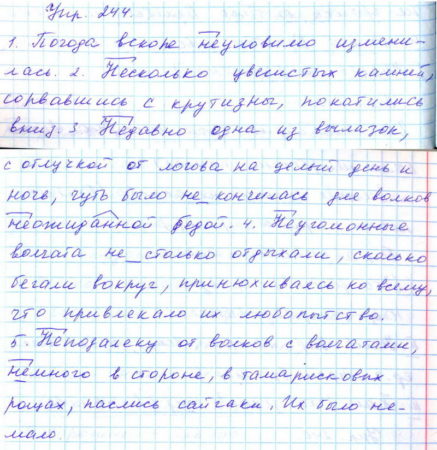 Упр. 244.
1. Погода вскоре неуловимо измени-
лась. 2. Несколько увесистых камней,
сорвавшись с крутизны, покатились
вниз. 3. Недавно одна из вылазок,
с отлучкой от логова на целый день и
ночь, чуть было не_кончилась для волков
неожиданной бедой. 4. Неугомонные
волчата не_столько отдыхали, сколько
бегали вокруг, принюхиваясь ко всему,
что привлекало их любопытство.
5. Неподалеку от волков с волчатами,
немного в стороне, в тамарисковых
рощах, паслись сайгаки. Их было не-
мало.